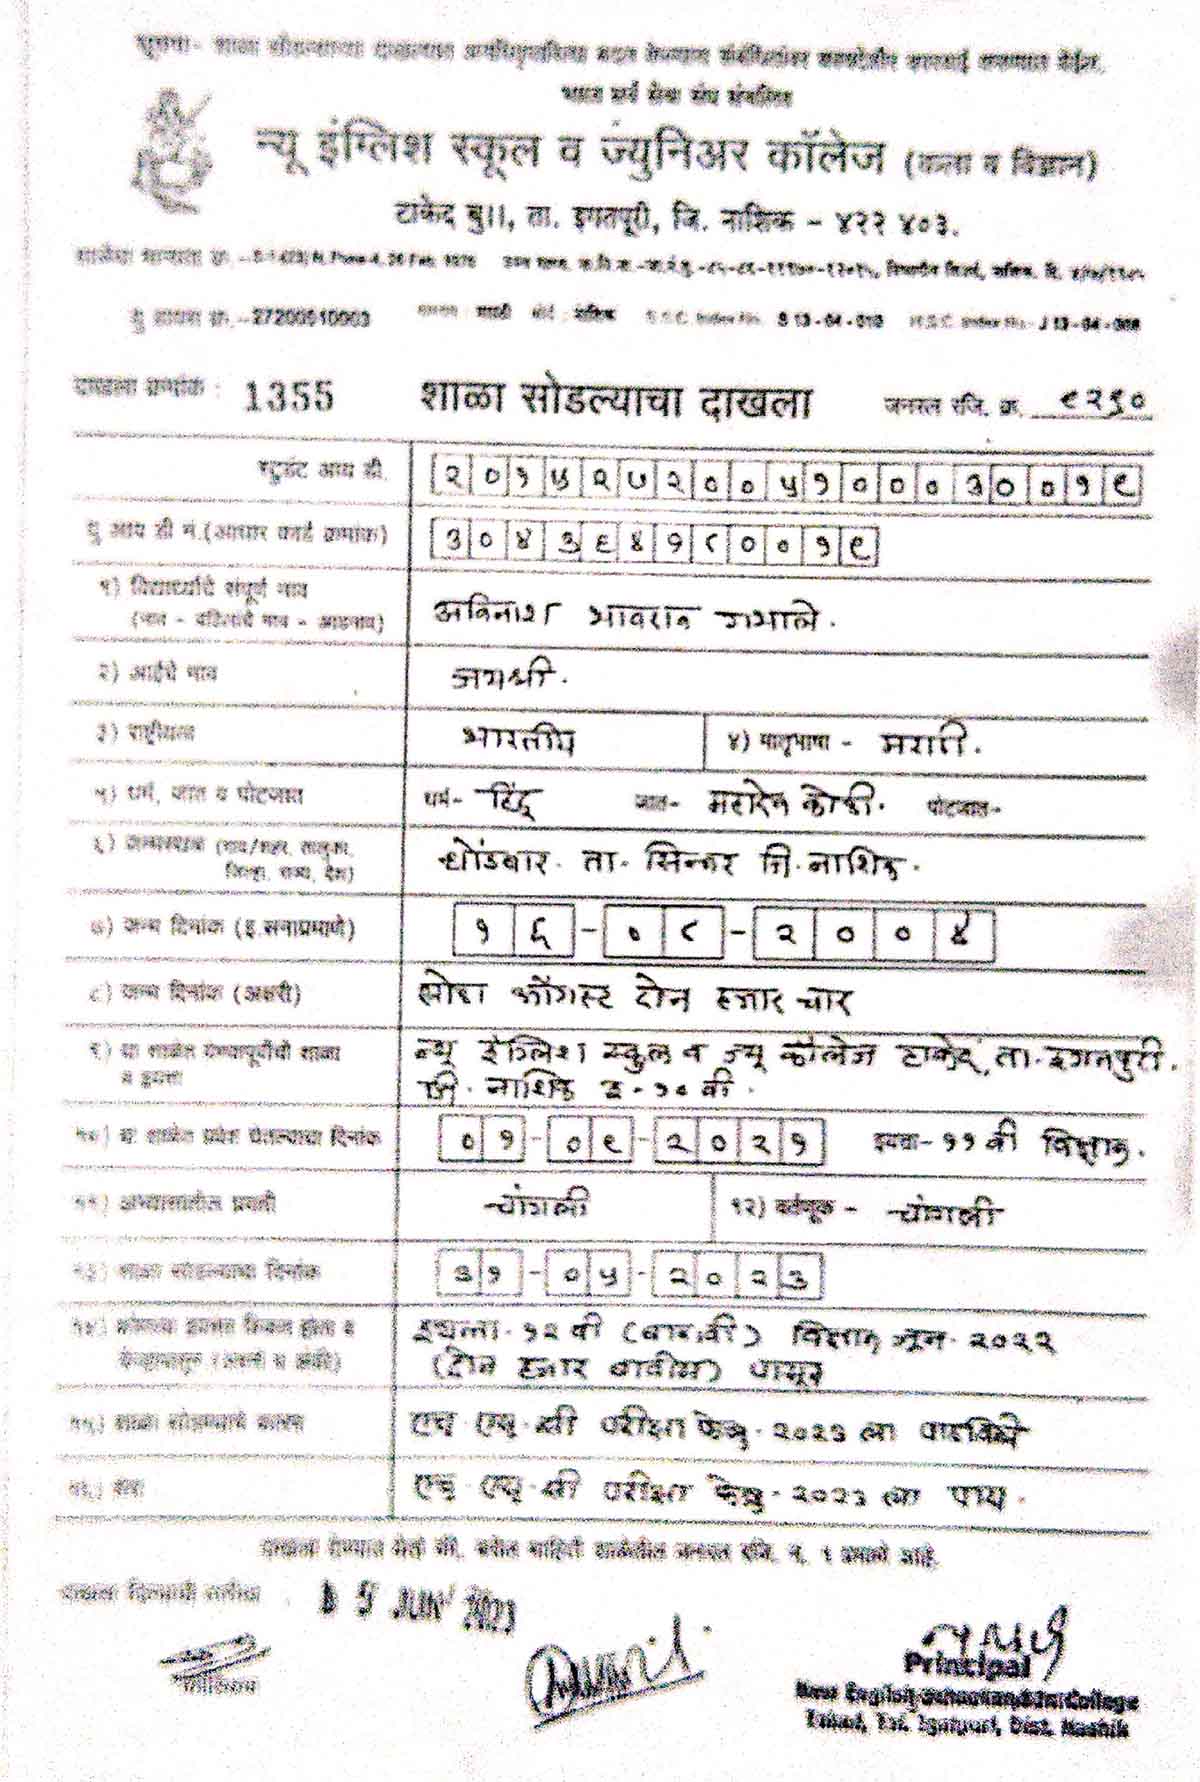 सूचना- शाळा सोडल्याच्या दाखल्यात अनधिकृतरित्या बदल केल्यास संबंधितांवर कायदेशीर कारवाई करण्यात येईल.
न्यू इंग्लिश स्कूल व ज्युनिअर कॉलेज (कला व विज्ञान)
टाकेद बु।।, ता. इगतपूरी, जि. नाशिक - ४२२ ४०३.
शाळेचा मान्यता क्र.
यु डायस क्र.-27200510003 S.S.C. Index No. S 13-04-018 H.S.C. Index No. J 13-04-008
दाखला क्रमांक : 1355 शाळा सोडल्याचा दाखला जनरल रजि. क्र. ८२९०
स्टुडंट आय डी. २०१५२७२००५१०००३००१९
यु आय डी नं.(आधार कार्ड क्रमांक)
१) विद्यार्थ्याचे संपूर्ण नाव अविनाश भावराव गभाले.
(नाव - वडिलांचे नाव - आडनाव)
२) आईचे नाव जयश्री.
३) राष्ट्रीयत्व भारतीय ४) मातृभाषा - मराठी.
५) धर्म, जात व पोटजात धर्म- हिंदू जात- महादेव कोळी. पोटजात-
६) जन्मस्थान (गाव/शहर, तालुका, धोंडबार. ता. सिन्नर जि. नाशिक.
जिल्हा, राज्य, देश)
७) जन्म दिनांक (इ.सनाप्रमाणे) १६-०८-२००४
८) जन्म दिनांक (अक्षरी) सोळा ऑगस्ट दोन हजार चार
९) या शाळेत येण्यापूर्वीची शाळा न्यू इंग्लिश स्कुल व ज्यू कॉलेज टाकेद, ता. इगतपुरी.
व इयत्ता जि. नाशिक इ. १० वी.
१०) या शाळेत प्रवेश घेतल्याचा दिनांक ०१-०९-२०२१ इयत्ता- ११ वी विज्ञान.
११) अभ्यासातील प्रगती चांगली १२) वर्तणूक - चांगली
१३) शाळा सोडल्याचा दिनांक ३१-०५-२०२३
१४) कोणत्या इयत्तेत शिकत होता व इयत्ता. १२ वी (बारावी) विज्ञान जून. २०२२
केव्हापासून (अक्षरी व अंकी) (दोन हजार बावीस) पासून
१५) शाळा सोडण्याचे कारण एच. एस्. सी परीक्षा फेब्रु. २०२३ ला
१६) शेरा एच. एस्. सी परीक्षा फेब्रु. २०२३ ला पास.
दाखला देण्यात येतो की, वरील माहिती शाळेतील जनरल रजि. नं. १ प्रमाणे आहे.
दाखला दिल्याची तारीख JUN 2023
Principal
New English School and Jr. College
Takad, Tal. Igatpuri, Dist. Nashik